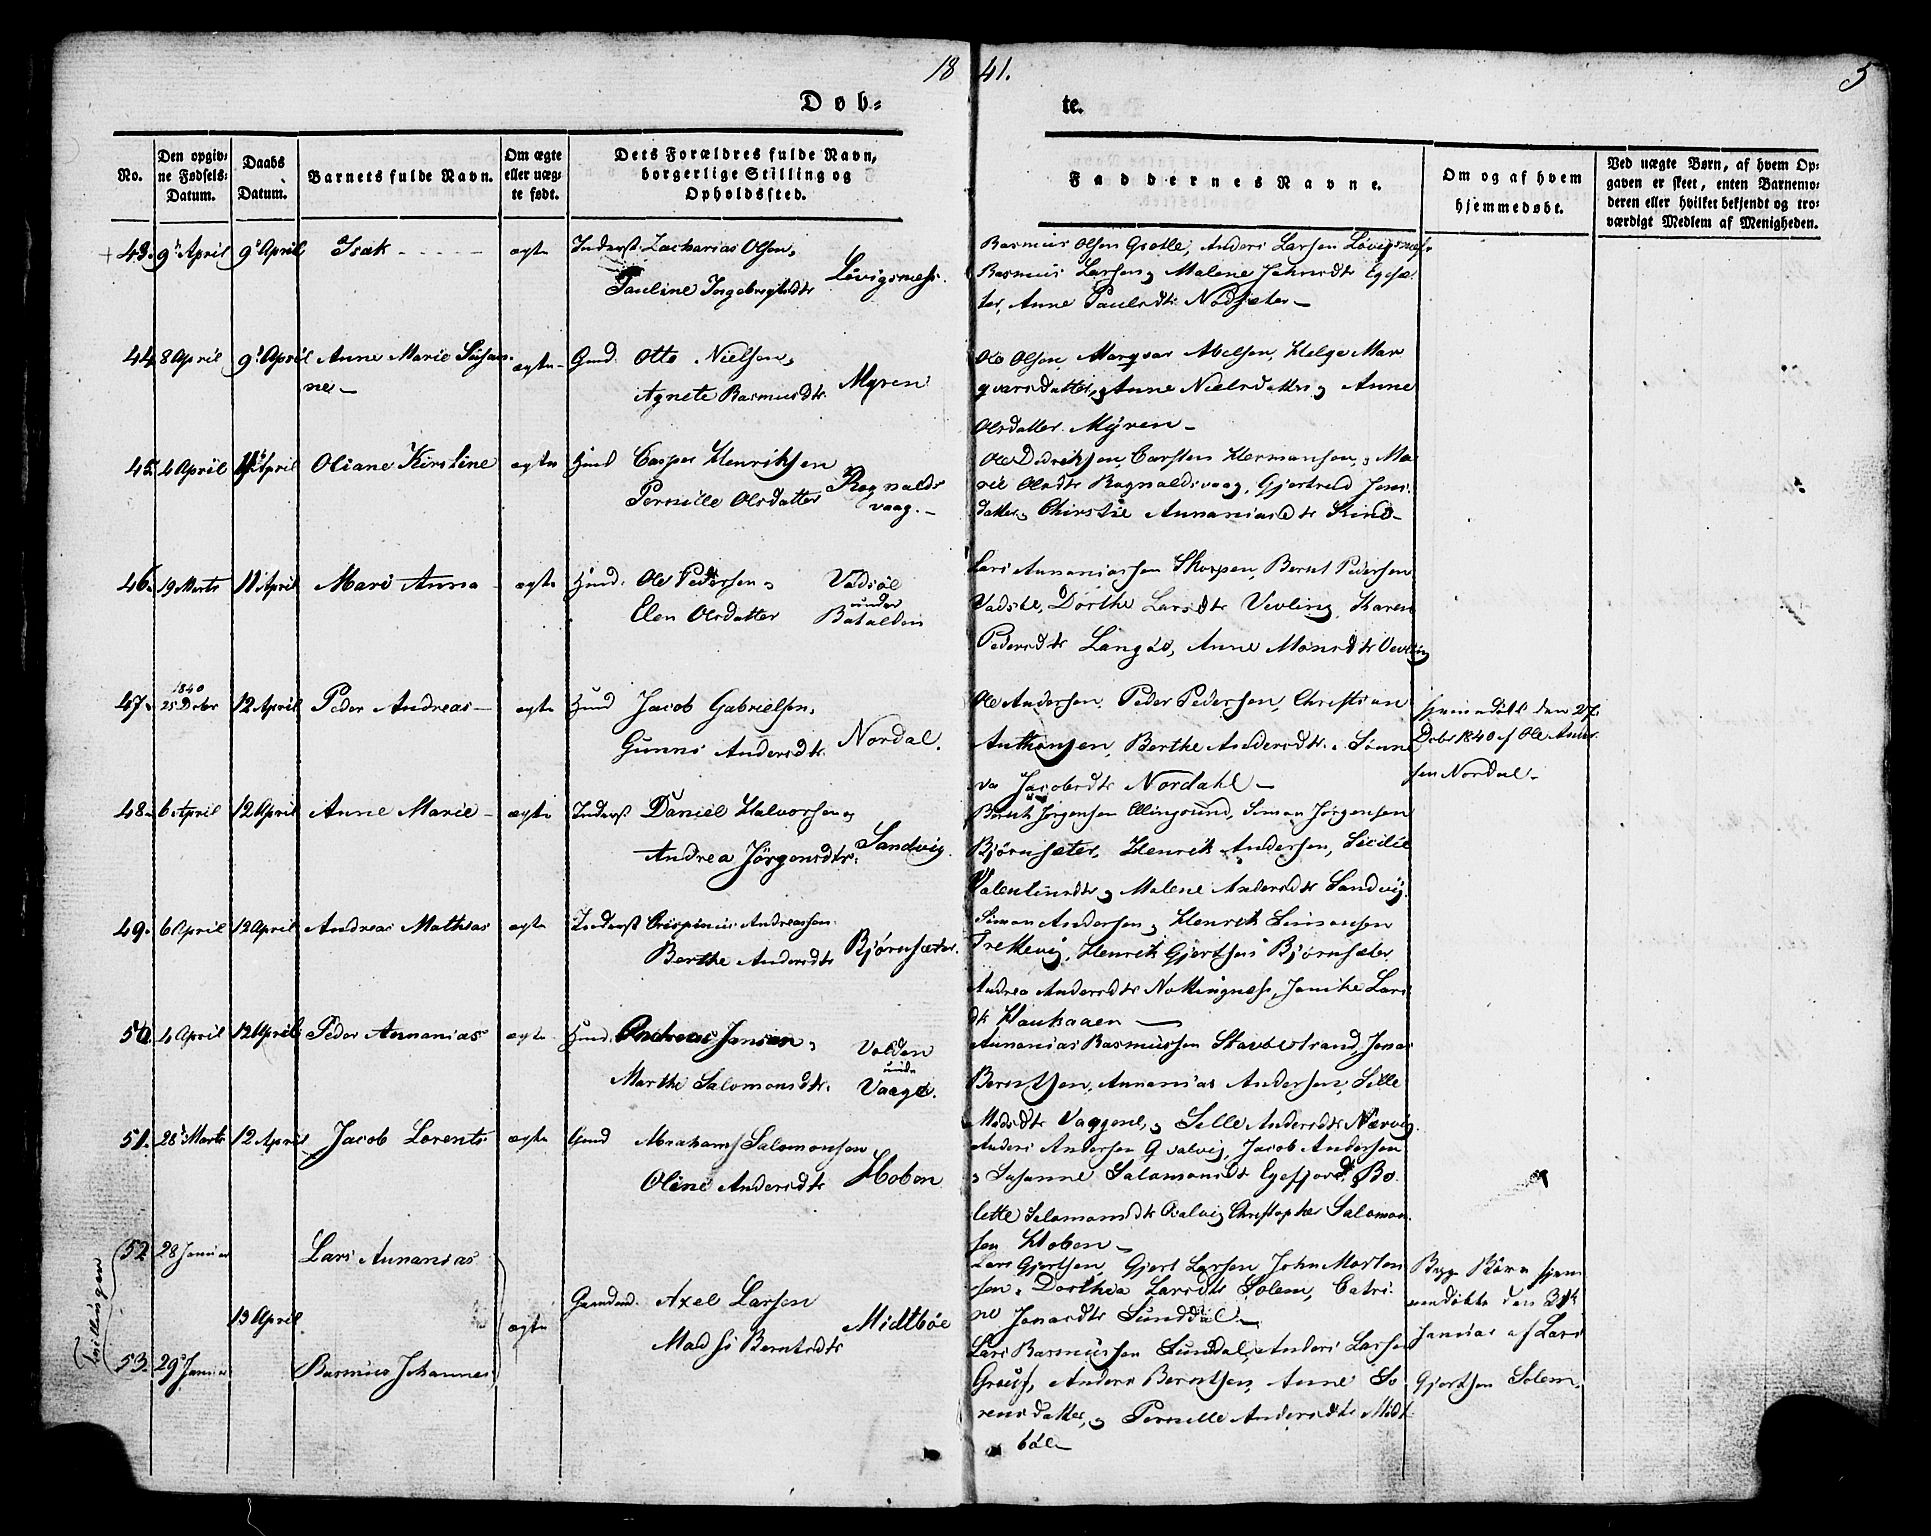 18 41. 5
Døb- te.
No.
Den opgiv-
ne Fødsels-
Datum.
Daabs
Datum.
Barnets fulde Navn.
Om ægte
eller uæg-
te født.
Dets Forældres fulde Navn,
borgerlige Stilling og
Opholdssted.
Faddernes Navne.
Om og af hvem
hjemmedøbt.
Ved uægte Børn, af hvem Op-
gaven er skeet, enten Barnemo-
deren eller hvilket bekjendt og tro-
værdigt Medlem af Menigheden.
43. 9 April 9 April Isak ægte Inderst Zacharias Olsen,
Pauline Ingebregtsdtr Løvigsness.
Rasmus Olsen Grotle, Anders Larsen Løvigsness
Rasmus Larsen, Malene Johnsdtr Egesæ-
ter, Anne Paulsdtr Nodsæter
44. 8 April 9 April Anne Marie Susan-
ne ægte Gmd. Otto Nielsen,
Agnete Rasmusdtr Myren
Ole Olsen, Marqvar Abelsen, Helge Mar
qvarsdatter, Anne Nielsdatter, Anne
Olsdatter Myren
45. 4 April April Oliane Kirstine ægte Hmd Casper Henriksen
Pernille Olsdatter Ragnalds
vaag.
Ole Didriksen, Carsten Hermansen, Ma
rie Olsdtr Ragnaldsvaag, Gjertrud Jens
datter, Christie Annaniasdtr Kind
46. 19 Marts 11 April Mari Anna ægte Hmd. Ole Pedersen,
Elen Olsdatter Vadsøe
under
Batalden
Lars Annaniassen Skorpen, Bernt Pedersen
Vadsøe, Dorthe Larsdtr Vevling, Karen
Pedersdtr Langøe, Anne Monsdtr Vevling
47. 1840
25 Debr 12 April Peder Andreas ægte Hmd Jacob Gabrielsen,
Gunni Andersdtr Nordal.
Ole Andersen, Peder Pedersen, Christian
Anthonsen, Berthe Andersdtr, Sønne
va Jacobsdtr Nordahl
hjemmedøbt den 27
Debr 1840 af Ole Ander
sen Nordal
48. 6 April 12 April Anne Marie ægte Inderst Daniel Halvorsen
Andrea Jørgensdtr. Sandvig
Bernt Jørgensen Ellingsund, Simon Jørgensen
Bjørnsæter, Henrik Andersen, Sicilie
Valentinsdtr, Malene Andersdtr Sandvig.
49. 6 April 12 April Andreas Mathias ægte Inderst Crispinus Andreassen
Berthe Andersdtr Bjørnsæter.
Simon Andersen, Henrik Simonsen
Trettevig, Henrik Gjertsen Bjørnsæter
Andrea Andersdtr Nottingness, Janike Lars
dtr Haukaaen
50. 4 April 12 April Peder Annanias ægte Hmd. Andreas Jansen,
Marthe Salomonsdtr. Volden
under
Vaage.
Annanias Rasmussen Stavestrand, Jonas
Berntsen, Annanias Andersen, Sille
Madsdtr Vaagene, Sille Andersdtr Nærvig
51. 28 Marts 12 April Jacob Lorents ægte Gmd Abraham Salomonsen
Oline Andersdtr Hoben
Anders Andersen Qvalvig, Jacob Andersen
Susanne Salomonsdtr Egefjord, Bo
lette Salomonsdtr Qvalvig Christopher Salomon
sen Hoben
Tvillinger
52. 28 Januar 13 April Lars Annanias ægte Gaardmd. Axel Larsen
Madsi Berntsdtr Midtbøe
Lars Gjertsen, Gjert Larsen, John Morten
sen, Dorthea Larsdtr Solem, Catri-
ne Jonasdtr Sunddal
Begge Børn hjem
medøbte den 31te
Januar af Lars
Gjertsen Solem.
53. 29 Januar Rasmus Johannes
Lars Rasmussen Sunddal, Anders Larsen
Grov, Anders Berntsen, Anne So
rensdatter, Pernille Andersdtr Midt
bøe